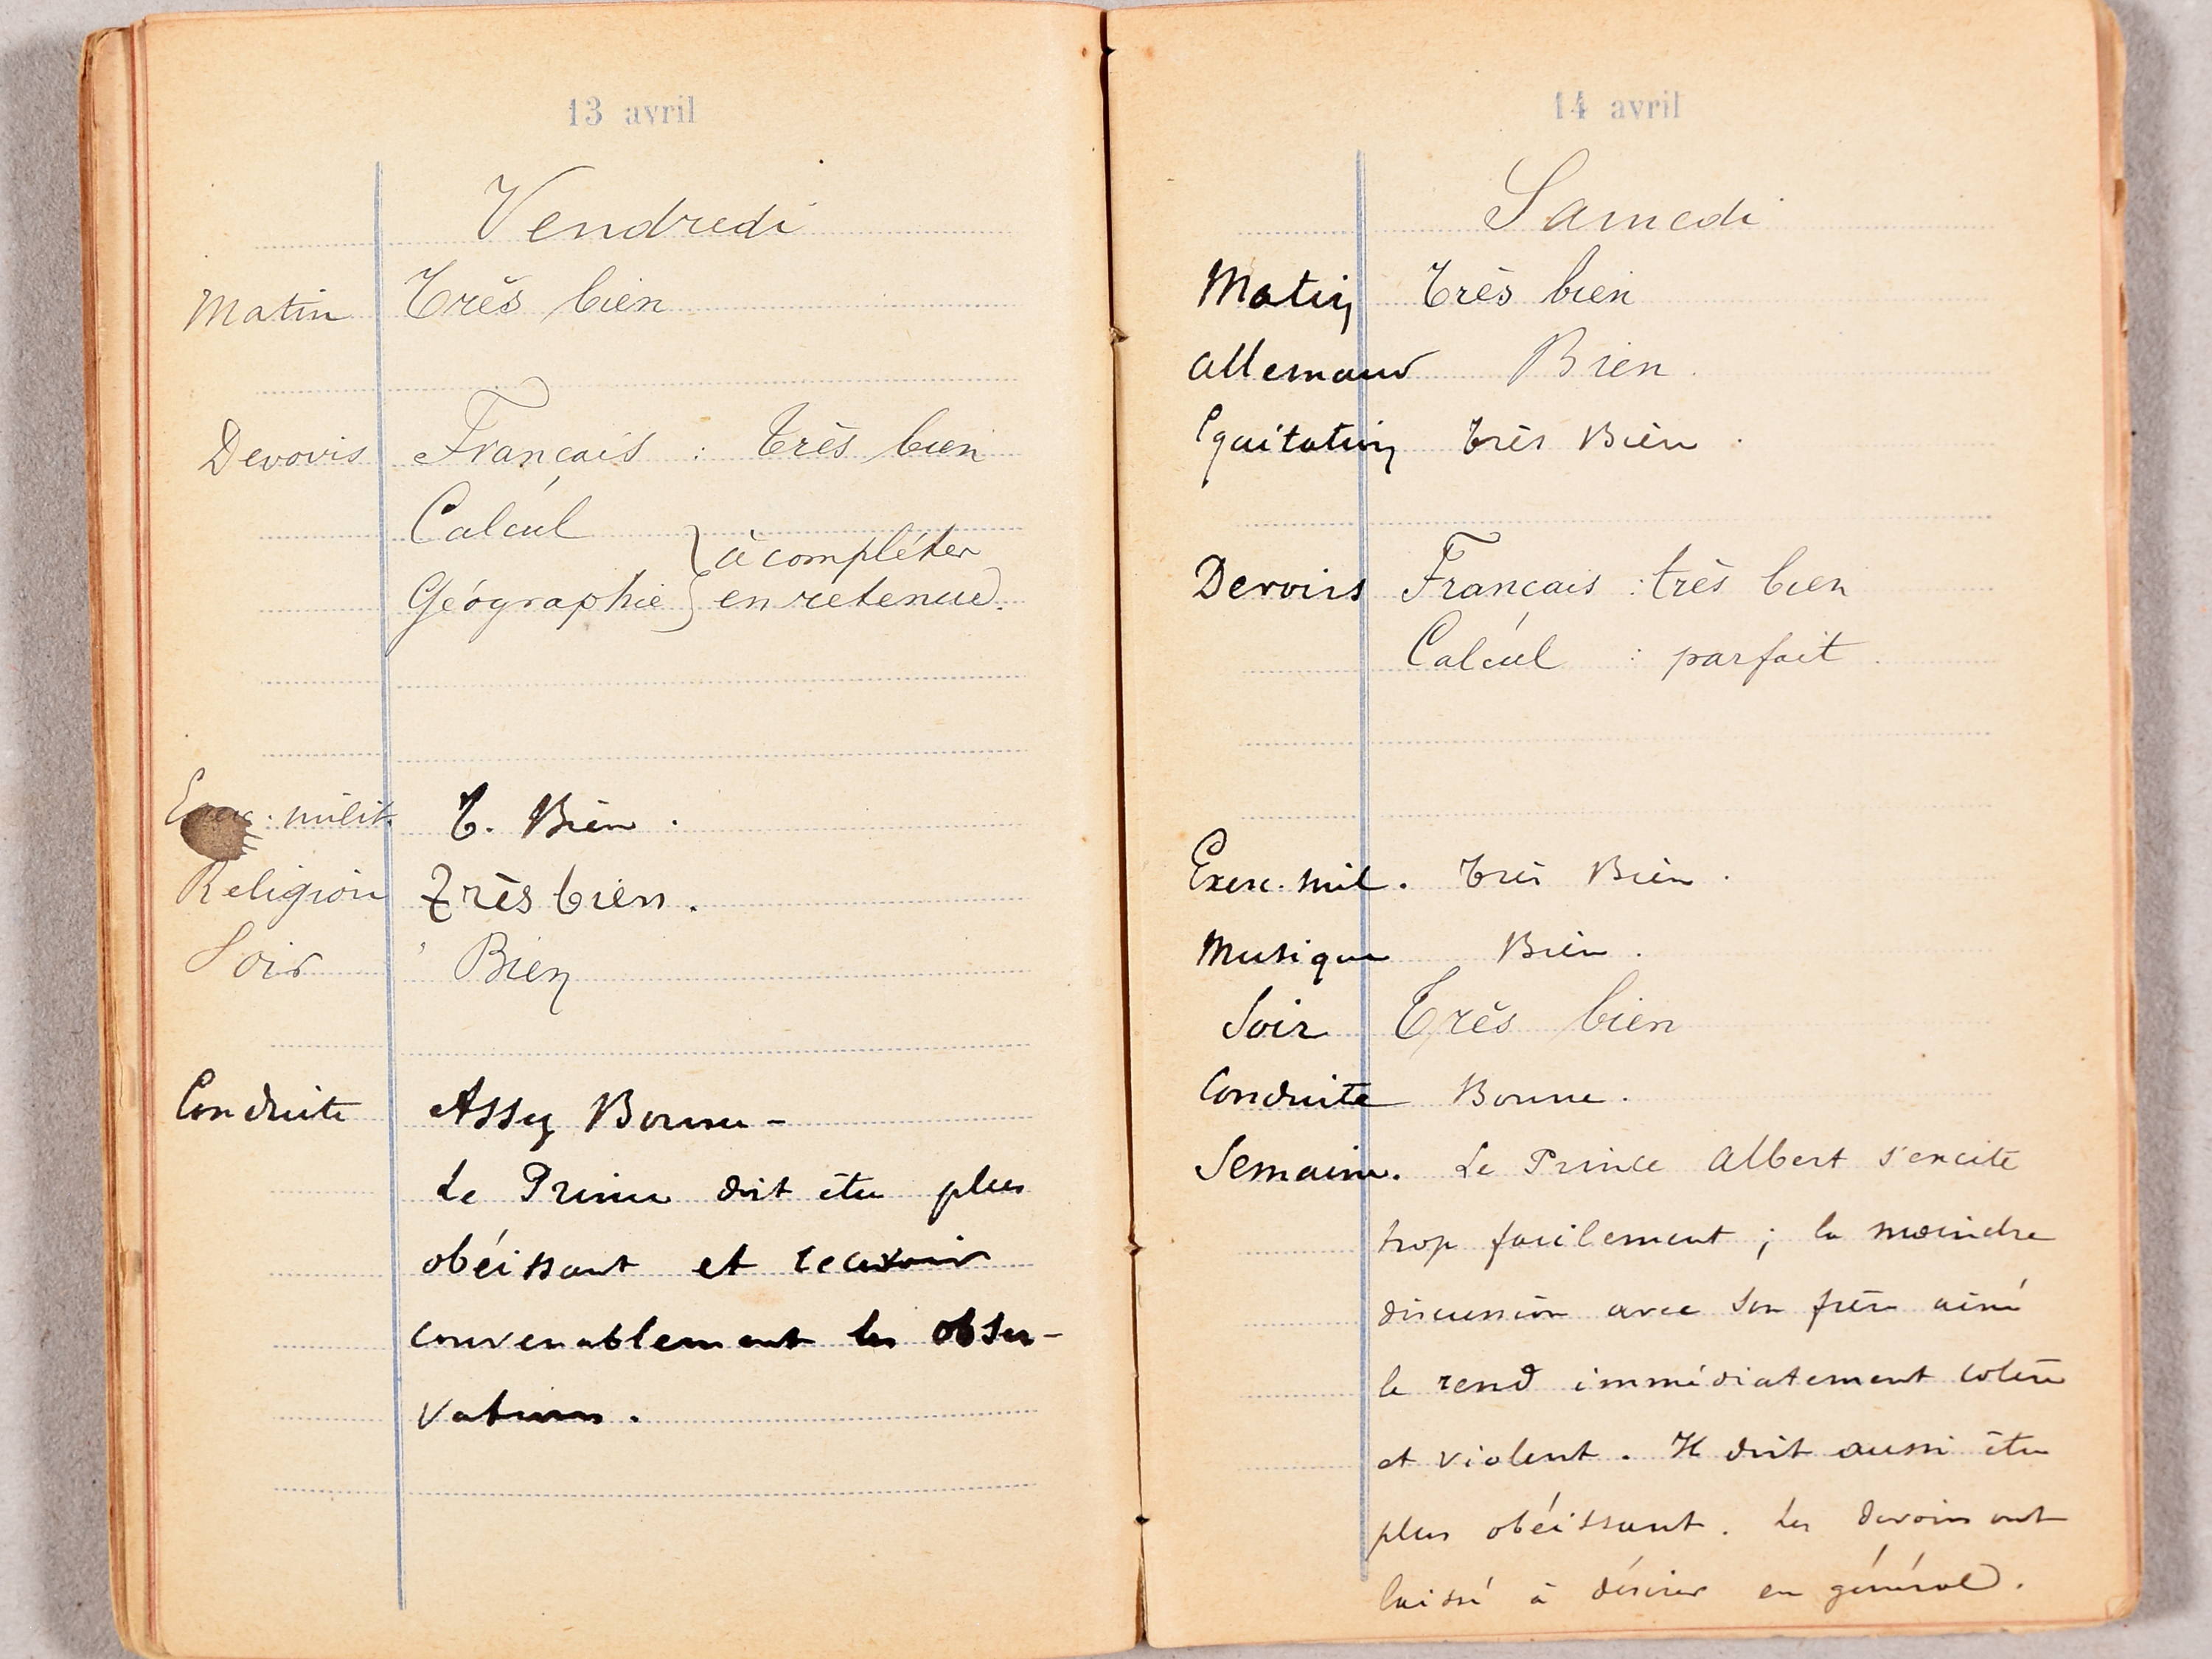 13 avril
Vendredi
Matin Très bien
Devoirs Français : très bien
Calcul
à compléter
Géographie } en retenue.
Exerc. milit. T. Bien.
Religion Très bien.
Soir Bien
Conduite Assez Bonne -
Le Prince doit être plus
obéissant et recevoir
convenablement les obser-
vations.
14 avril
Samedi
Matin Très bien
Allemand Bien.
Equitation très Bien.
Devoirs Français : très bien
Calcul : parfait.
Exerc. mil. très Bien.
Musique Bien.
Soir Très bien
Conduite Bonne.
Semaine. Le Prince Albert s'excite
trop facilement ; la moindre
discussion avec son frère ainé
le rend immédiatement colère
et violent. Il doit aussi être
plus obéissant. Les devoirs ont
laissé à désirer en général.